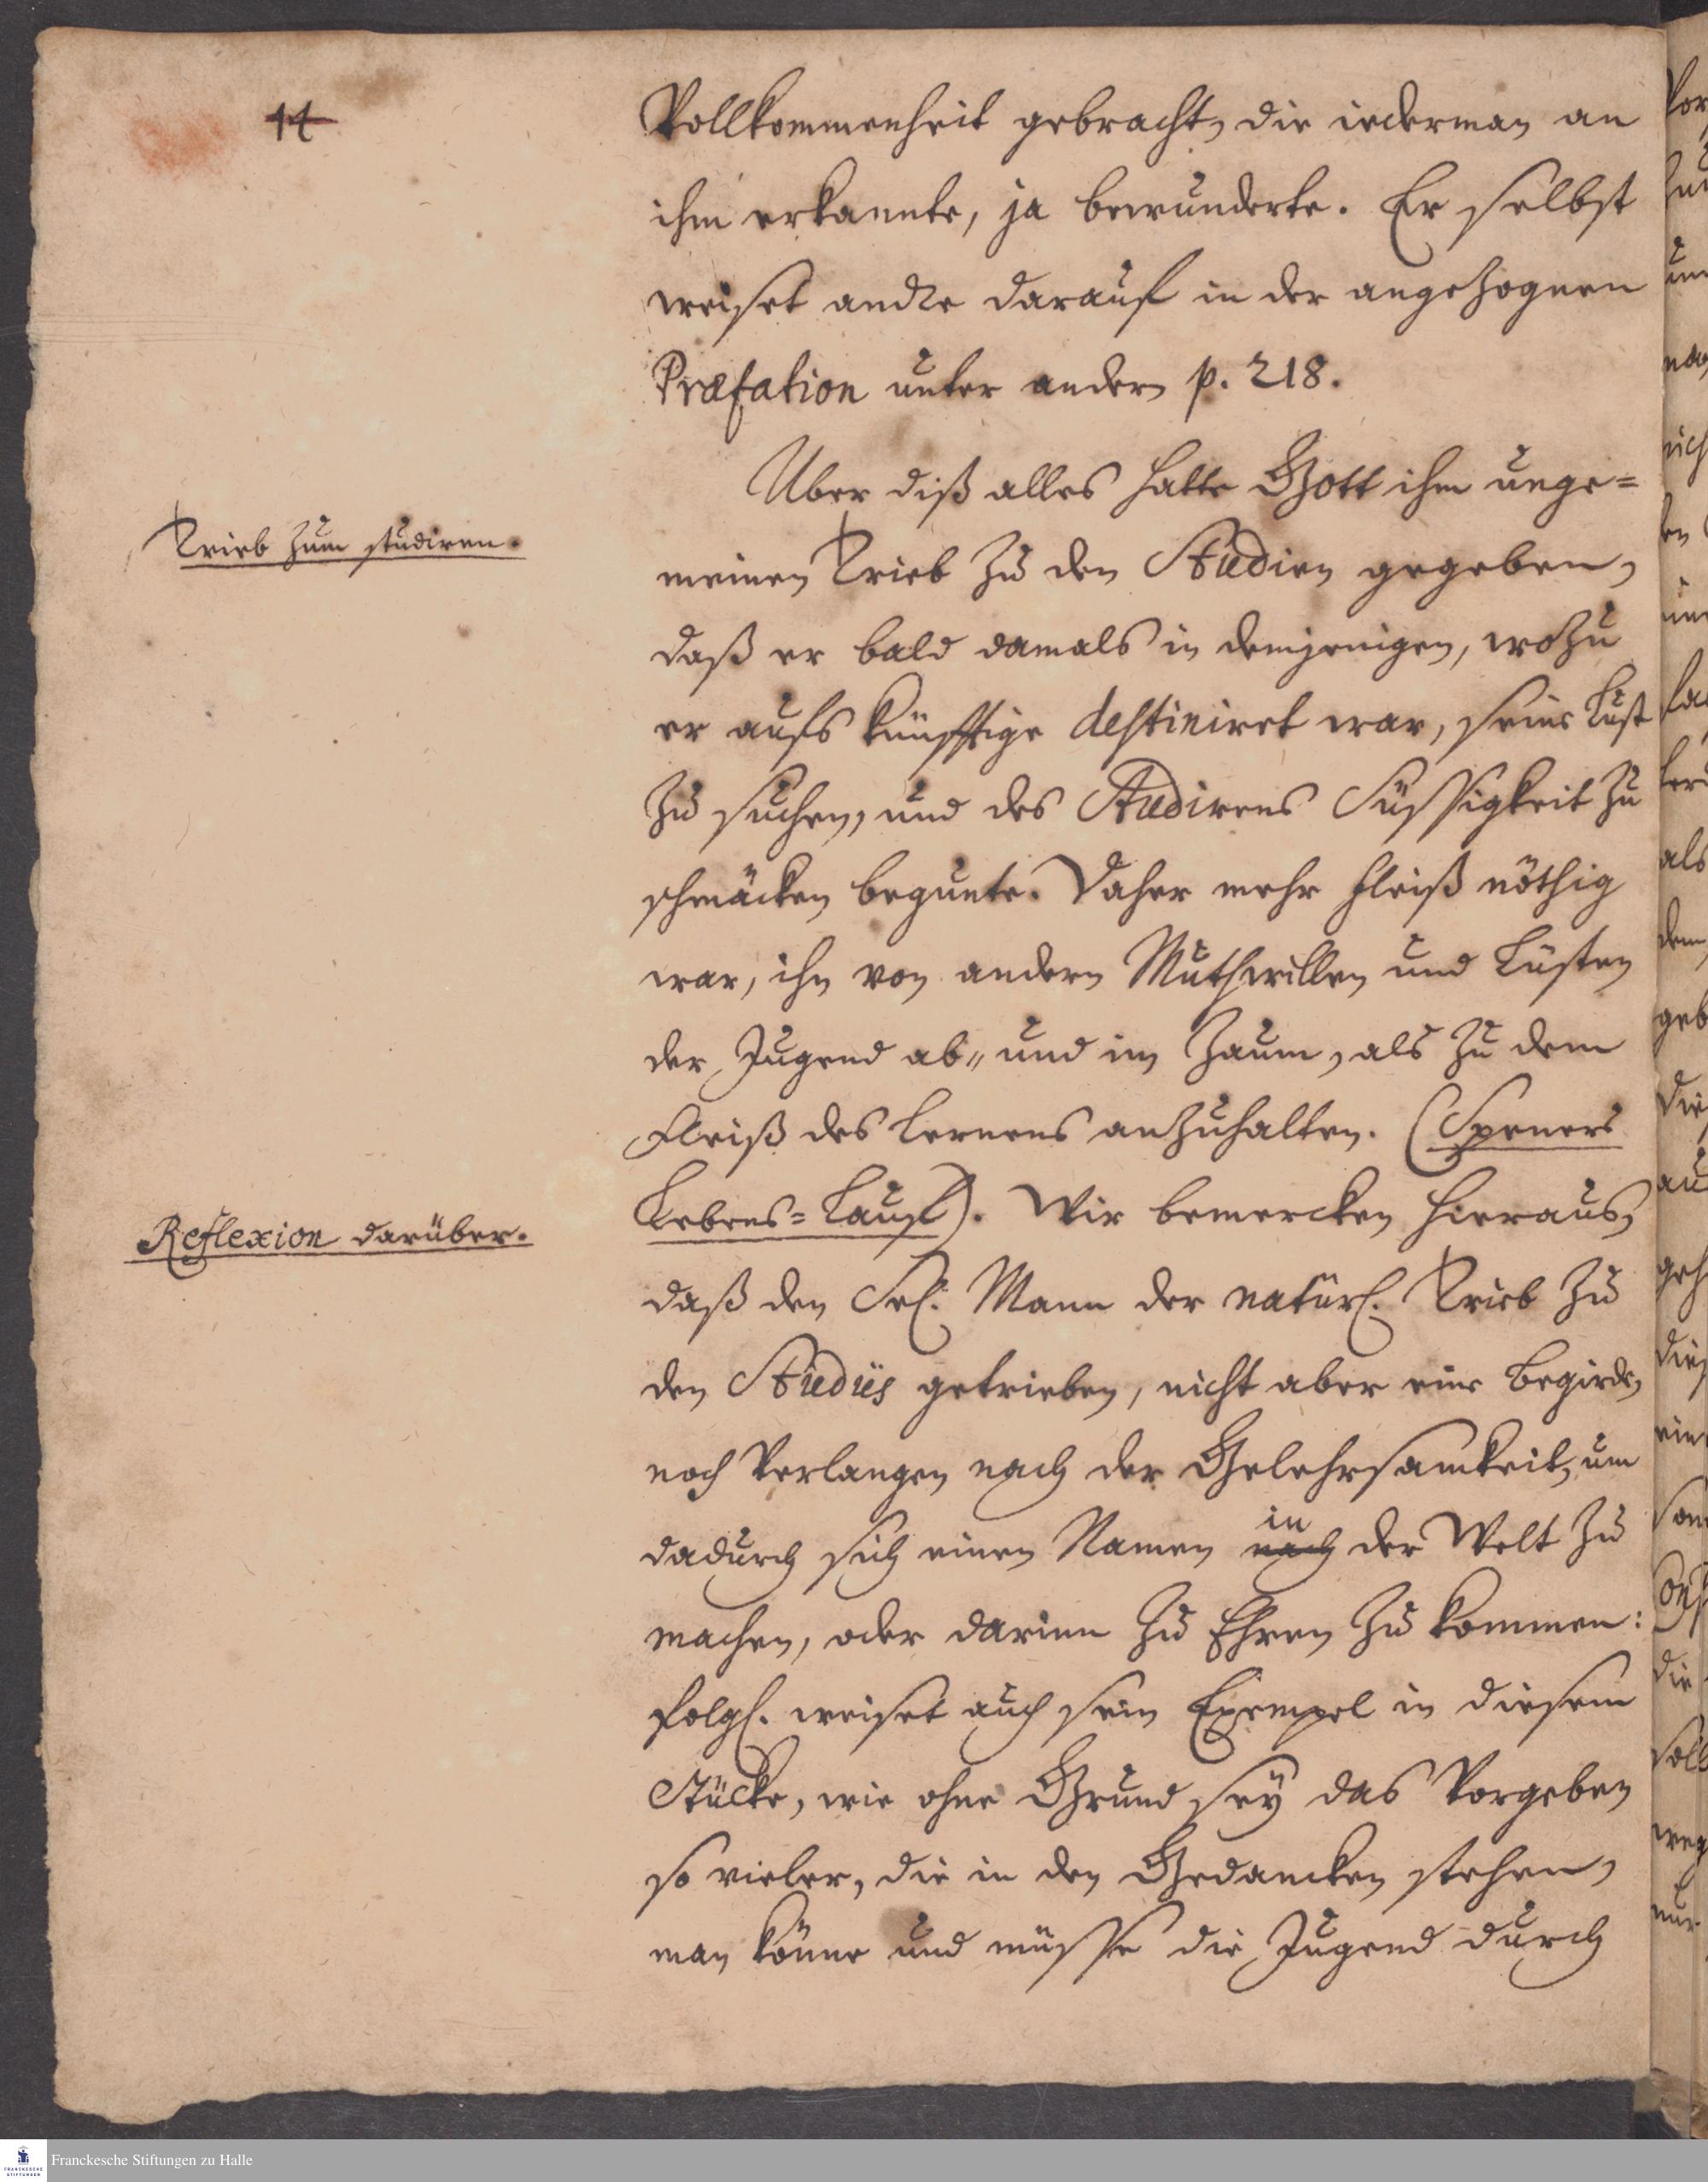 14
Vollkommenheit gebracht, die iederman an
ihm erkannte, ja bewunderte. Er selbst
weiset andre darauf in der angezognen
Præfation unter andern p. 218.
Uber diß alles hatte Gott ihm unge=
Trieb zum studiren.
meinen Trieb zu den Studien gegeben,
daß er bald damals in demjenigen, wozu
er aufs künfftige destiniret war, seine Lust
zu suchen, und des Studirens Süssigkeit zu
schmäcken begunte. Daher mehr fleiß nöthig
war, ihn von andern Muthwillen und Lüsten
der Jugend ab„ und im Zaum, als zu dem
Fleiß des Lernens anzuhalten. (Speners
Lebens=Lauf). Wir bemercken hieraus,
Reflexion darüber.
daß den Sel. Mann der natürl. Trieb zu
den Studiis getrieben, nicht aber eine Begirde,
noch Verlangen nach der Gelehrsamkeit, um
dadurch sich einen Namen nach in der Welt zu
machen, oder darinn zu Ehren zu kommen:
folgl. weiset auch sein Exempel in diesem
Stücke, wie ohne Grund sey das Vorgeben
so vieler, die in den Gedancken stehen,
man könne und müsse die Jugend durch
Franckesche Stiftungen zu Halle